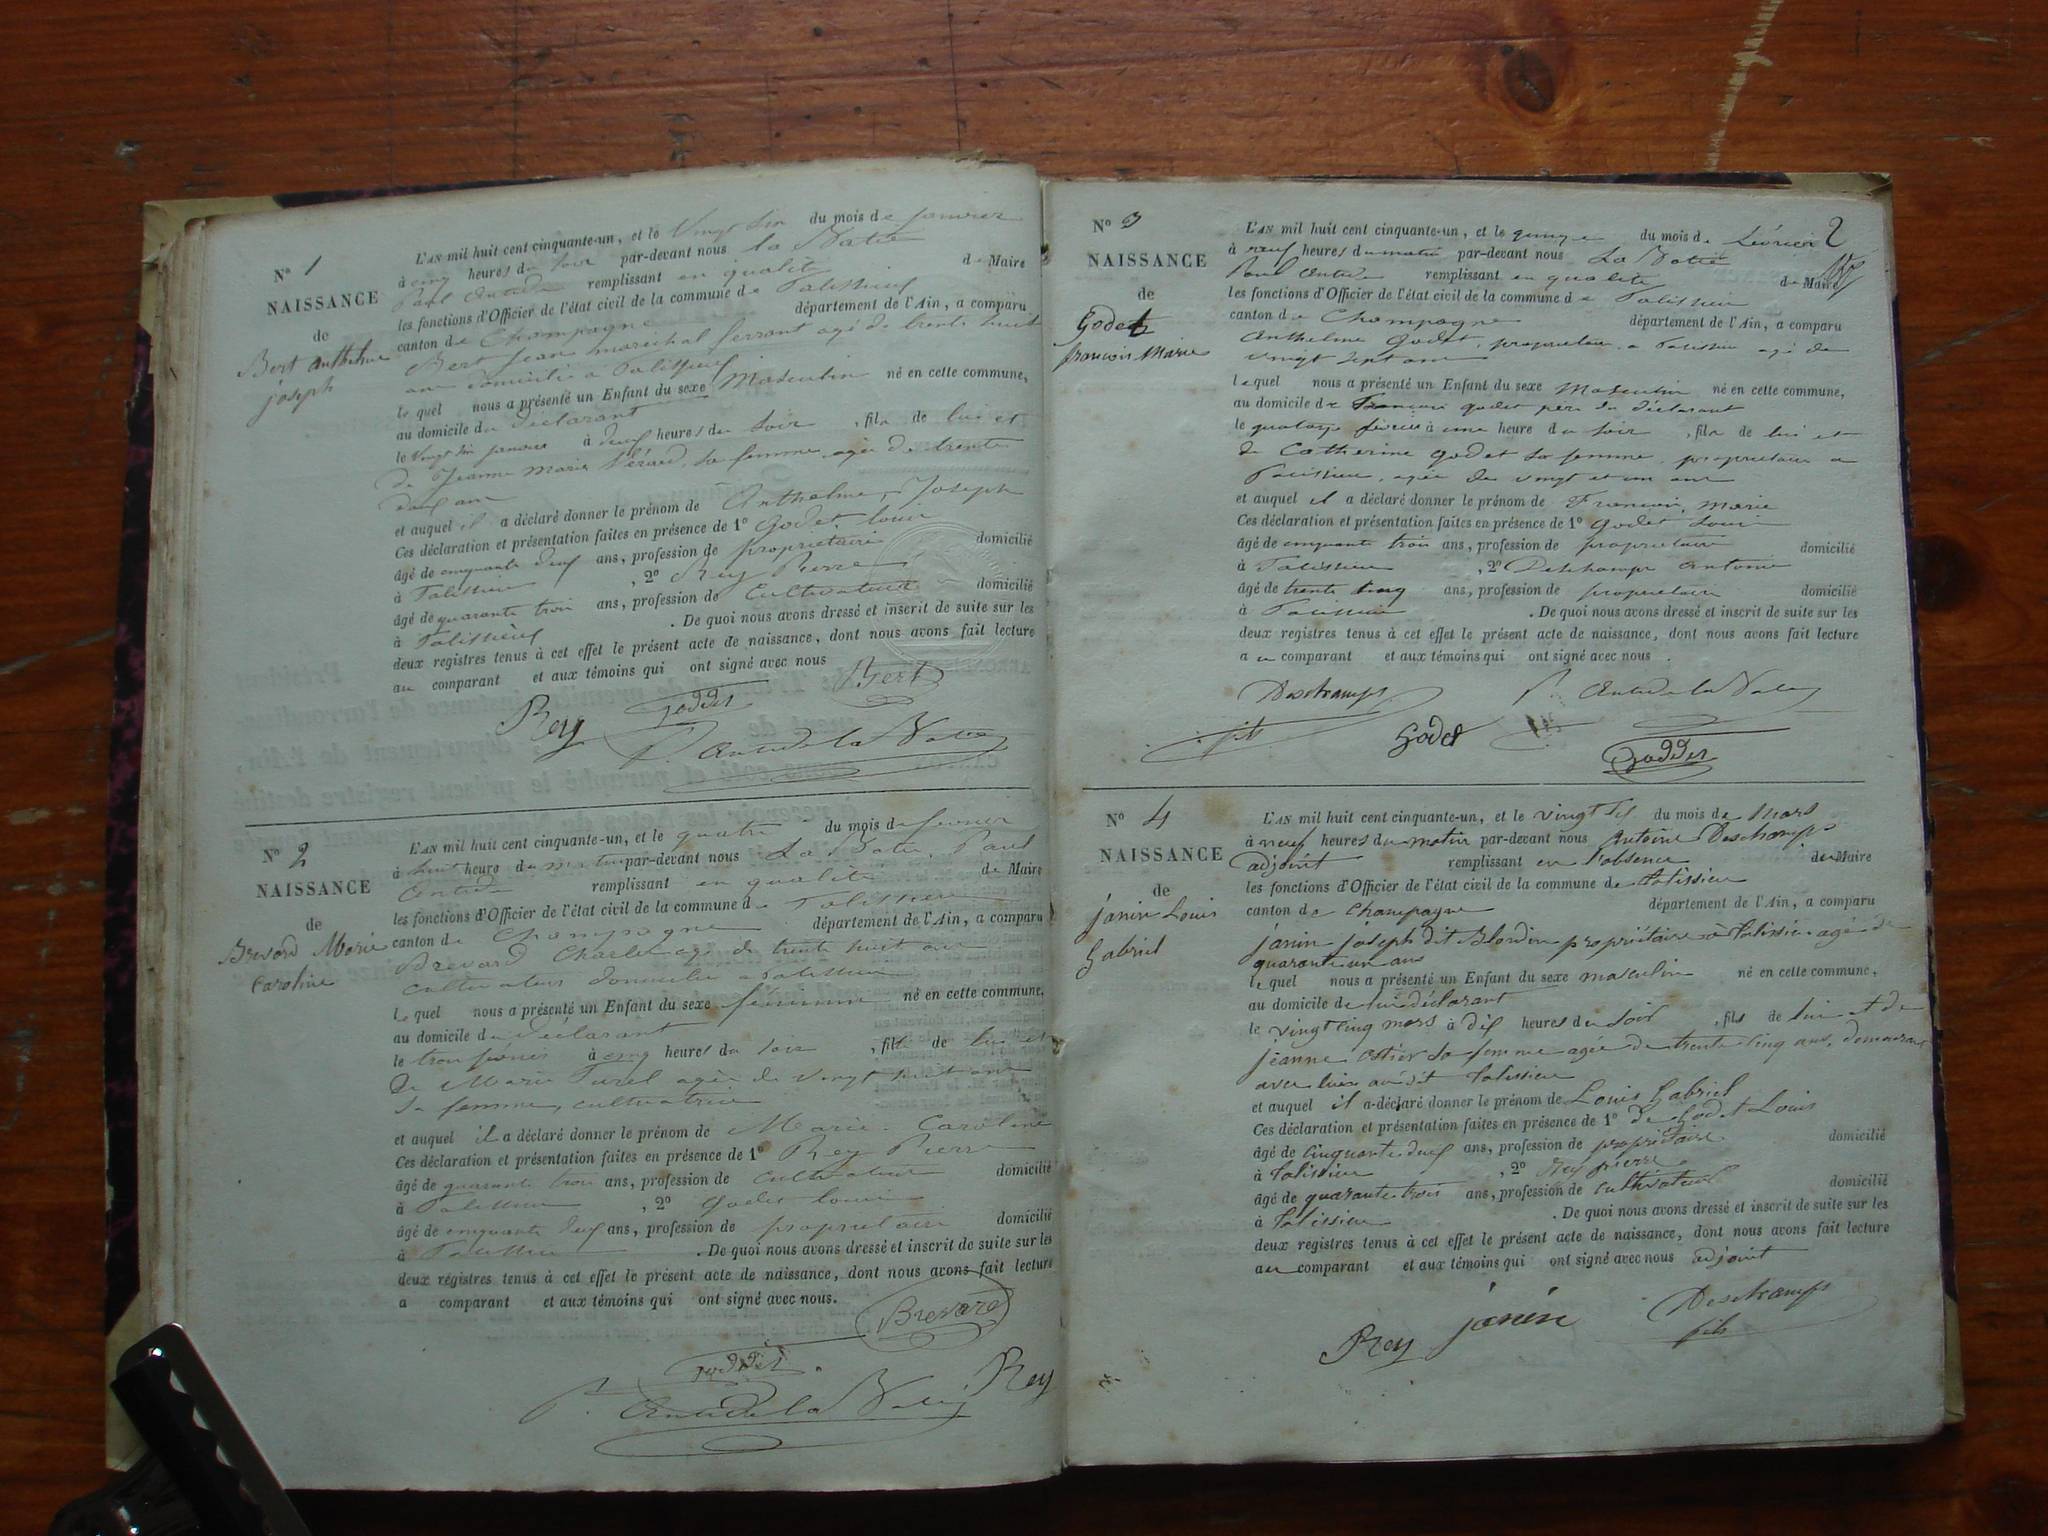 N° 1
NAISSANCE
de
Bert Anthelme
joseph
L'AN mil huit cent cinquante-un, et le Vingt Six du mois de janvier
à cinq heures du soir par-devant nous la Batie
Paul Antide remplissant en qualité de Maire
les fonctions d'Officier de l'état civil de la commune de Talissieu
canton de Champagne département de l'Ain, a comparu
Bert Jean marechal ferrant agé de trente huit
ans domicilié a Talissieu
le quel nous a présenté un Enfant du sexe Masculin né en cette commune,
au domicile du déclarant
le Vingt Six janvier à heures du soir, fils de lui et
de Jeanne Marie sa femme agée de trente
ans
et auquel il a déclaré donner le prénom de Anthelme, Joseph
Ces déclaration et présentation faites en présence de 1° Godet louis
âgé de cinquante deux ans, profession de propriétaire domicilié
à Talissieu, 2° Rey Pierre
âgé de quarante trois ans, profession de Cultivateur domicilié
à Talissieu. De quoi nous avons dressé et inscrit de suite sur les
deux registres tenus à cet effet le présent acte de naissance, dont nous avons fait lecture
au comparant et aux témoins qui ont signé avec nous
Bert
Rey goddet
P. Antide la Batie
N° 2
NAISSANCE
de
Brevard Marie
Caroline
L'AN mil huit cent cinquante-un, et le quatre du mois de fevrier
à huit heure du matin par-devant nous La Batie, Paul
Antide remplissant en qualité de Maire
les fonctions d'Officier de l'état civil de la commune de Talissieu
canton de Champagne département de l'Ain, a comparu
Brevard Charles agé de trente huit ans
cultivateur domicilié a Talissieu
le quel nous a présenté un Enfant du sexe féminin né en cette commune,
au domicile du déclarant
le trois fevrier à cinq heures du soir, fille de lui et
de Marie agée de vingt huit ans
sa femme, cultivatrice
et auquel il a déclaré donner le prénom de Marie. Caroline
Ces déclaration et présentation faites en présence de 1° Rey Pierre
âgé de quarante trois ans, profession de cultivateur domicilié
à Talissieu, 2° Godet louis
âgé de cinquante deux ans, profession de propriétaire domicilié
à Talissieu. De quoi nous avons dressé et inscrit de suite sur les
deux registres tenus à cet effet le présent acte de naissance, dont nous avons fait lecture
a comparant et aux témoins qui ont signé avec nous.
Brevard
goddet
P. Antide la Batie Rey
2
N° 3
NAISSANCE
de
Godet
francois Marie
L'AN mil huit cent cinquante-un, et le quinze du mois de fevrier
à neuf heures du matin par-devant nous La Batie
Paul Antide remplissant en qualité de Maire
les fonctions d'Officier de l'état civil de la commune de Talissieu
canton de Champagne département de l'Ain, a comparu
Anthelme Godet, proprietaire a Talissieu agé de
vingt sept ans
le quel nous a présenté un Enfant du sexe Masculin né en cette commune,
au domicile de Francois godet père du déclarant
le quatorze fevrier à une heure du soir, fils de lui et
de Catherine godet sa femme, proprietaire a
Talissieu, agée de vingt et un ans
et auquel il a déclaré donner le prénom de Francois, Marie
Ces déclaration et présentation faites en présence de 1° Godet Louis
âgé de cinquante trois ans, profession de proprietaire domicilié
à Talissieu, 2° Deschamps Antoine
âgé de trente cinq ans, profession de proprietaire domicilié
à Talissieu. De quoi nous avons dressé et inscrit de suite sur les
deux registres tenus à cet effet le présent acte de naissance, dont nous avons fait lecture
au comparant et aux témoins qui ont signé avec nous.
Deschamps P. Antide la Batie
fils godet
goddet
N° 4
NAISSANCE
de
janin Louis
Gabriel
L'AN mil huit cent cinquante-un, et le vingt six du mois de Mars
à neuf heures du matin par-devant nous Antoine Deschamps
adjoint remplissant en l'absence du Maire
les fonctions d'Officier de l'état civil de la commune de talissieu
canton de Champagne département de l'Ain, a comparu
janin joseph dit Blondin propriétaire à talissieu agé de
quarante un ans
le quel nous a présenté un Enfant du sexe masculin né en cette commune,
au domicile de lui déclarant
le vingt cinq mars à dix heures du soir, fils de lui et de
jeanne sa femme agée de trente cinq ans, demeurant
avec lui audit talissieu
et auquel il a déclaré donner le prénom de Louis Gabriel
Ces déclaration et présentation faites en présence de 1° de Godet Louis
âgé de cinquante deux ans, profession de propriétaire domicilié
à talissieu, 2° Rey pierre
âgé de quarante trois ans, profession de cultivateur domicilié
à talissieu. De quoi nous avons dressé et inscrit de suite sur les
deux registres tenus à cet effet le présent acte de naissance, dont nous avons fait lecture
au comparant et aux témoins qui ont signé avec nous adjoint
Rey janin Deschamps
fils